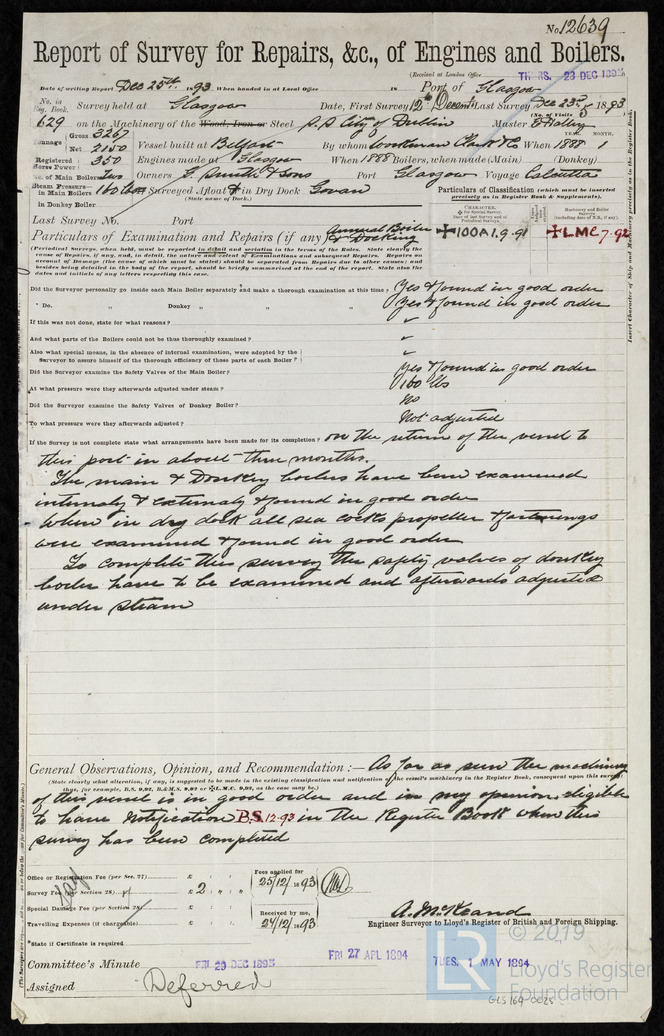 No. 12639
Report of Survey for Repairs, &c., of Engines and Boilers.
(Received at London Office THURS. 28 DEC 1893
Date of writing Report Dec 25th 1893 When handed in at Local Office 18 Port of Glasgow
No. in Reg. Book. Survey held at Glasgow Date, First Survey 12th Decem Last Survey Dec 23rd 1893
(No. of Visits 5)
629 on the Machinery of the Wood, Iron or Steel S.S. City of Dublin Master
Tonnage Gross 3267
Net 2150 Vessel built at Belfast By whom Workman Clark & Co When 1888 1
YEAR. MONTH.
Registered Horse Power 350 Engines made at Glasgow When 1888 Boilers, when made (Main) (Donkey)
No. of Main Boilers Two Owners G. Smith & Sons Port Glasgow Voyage Calcutta
Steam Pressure in Main Boilers 160 lbs Surveyed Afloat & in Dry Dock Govan
(State name of Dock.)
in Donkey Boiler
Particulars of Classification (which must be inserted precisely as in Register Book & Supplements).
Last Survey No. Port
Particulars of Examination and Repairs (if any) Annual Boiler & Docking
✠100A1.9.91 ✠LMC 7.92
(Periodical Surveys, when held, must be reported in detail and seriatim in the terms of the Rules. State clearly the
cause of Repairs, if any, and, in detail, the nature and extent of Examinations and subsequent Repairs. Repairs on
account of Damage (the cause of which must be stated) should be separated from Repairs due to other causes; and
besides being detailed in the body of the report, should be briefly summarised at the end of the report. State also the
dates and initials of any letters respecting this case.
Did the Surveyor personally go inside each Main Boiler separately and make a thorough examination at this time? Yes & found in good order
" Do. " Donkey " " " Yes & found in good order
If this was not done, state for what reasons?
And what parts of the Boilers could not be thus thoroughly examined?
Also what special means, in the absence of internal examination, were adopted by the
Surveyor to assure himself of the thorough efficiency of those parts of each Boiler?
Did the Surveyor examine the Safety Valves of the Main Boiler? Yes & found in good order
At what pressure were they afterwards adjusted under steam? 160 lbs
Did the Surveyor examine the Safety Valves of Donkey Boiler? No
To what pressure were they afterwards adjusted? Not adjusted
If the Survey is not complete state what arrangements have been made for its completion? On the return of the vessel to
this port in about three months.
The main & Donkey boilers have been examined
internaly & externaly & found in good order
When in dry dock all sea cocks propeller & fastenings
were examined & found in good order
To complete this survey the safety valves of donkey
boiler have to be examined and afterwards adjusted
under steam
General Observations, Opinion, and Recommendation :— As far as seen the machinery
(State clearly what alteration, if any, is suggested to be made in the existing classification and notification of the vessel's machinery in the Register Book, consequent upon this survey,
thus, for example, B.S. 9,92, B.&M.S. 9,92 or ✠L.M.C. 9,92, as the case may be.)
of this vessel is in good order and in my opinion eligible
to have Notification B.S. 12-93 in the Register Book when this
survey has been completed
Office or Registration Fee (per Sec. 27) £ : :
Fees applied for
25/12/1893
Survey Fee (per Section 28) £ 2 " "
Special Damage Fee (per Section 28) £ : :
Received by me,
27/12/1893
Travelling Expenses (if chargeable) £ : :
A. McKeand
Engineer Surveyor to Lloyd's Register of British and Foreign Shipping.
*State if Certificate is required
Committee's Minute FRI. 29 DEC 1893 FRI 27 APL 1894 TUES. 1 MAY 1894
Assigned Deferred
LR
© 2019
Lloyd's Register
Foundation
GLS 169-0025